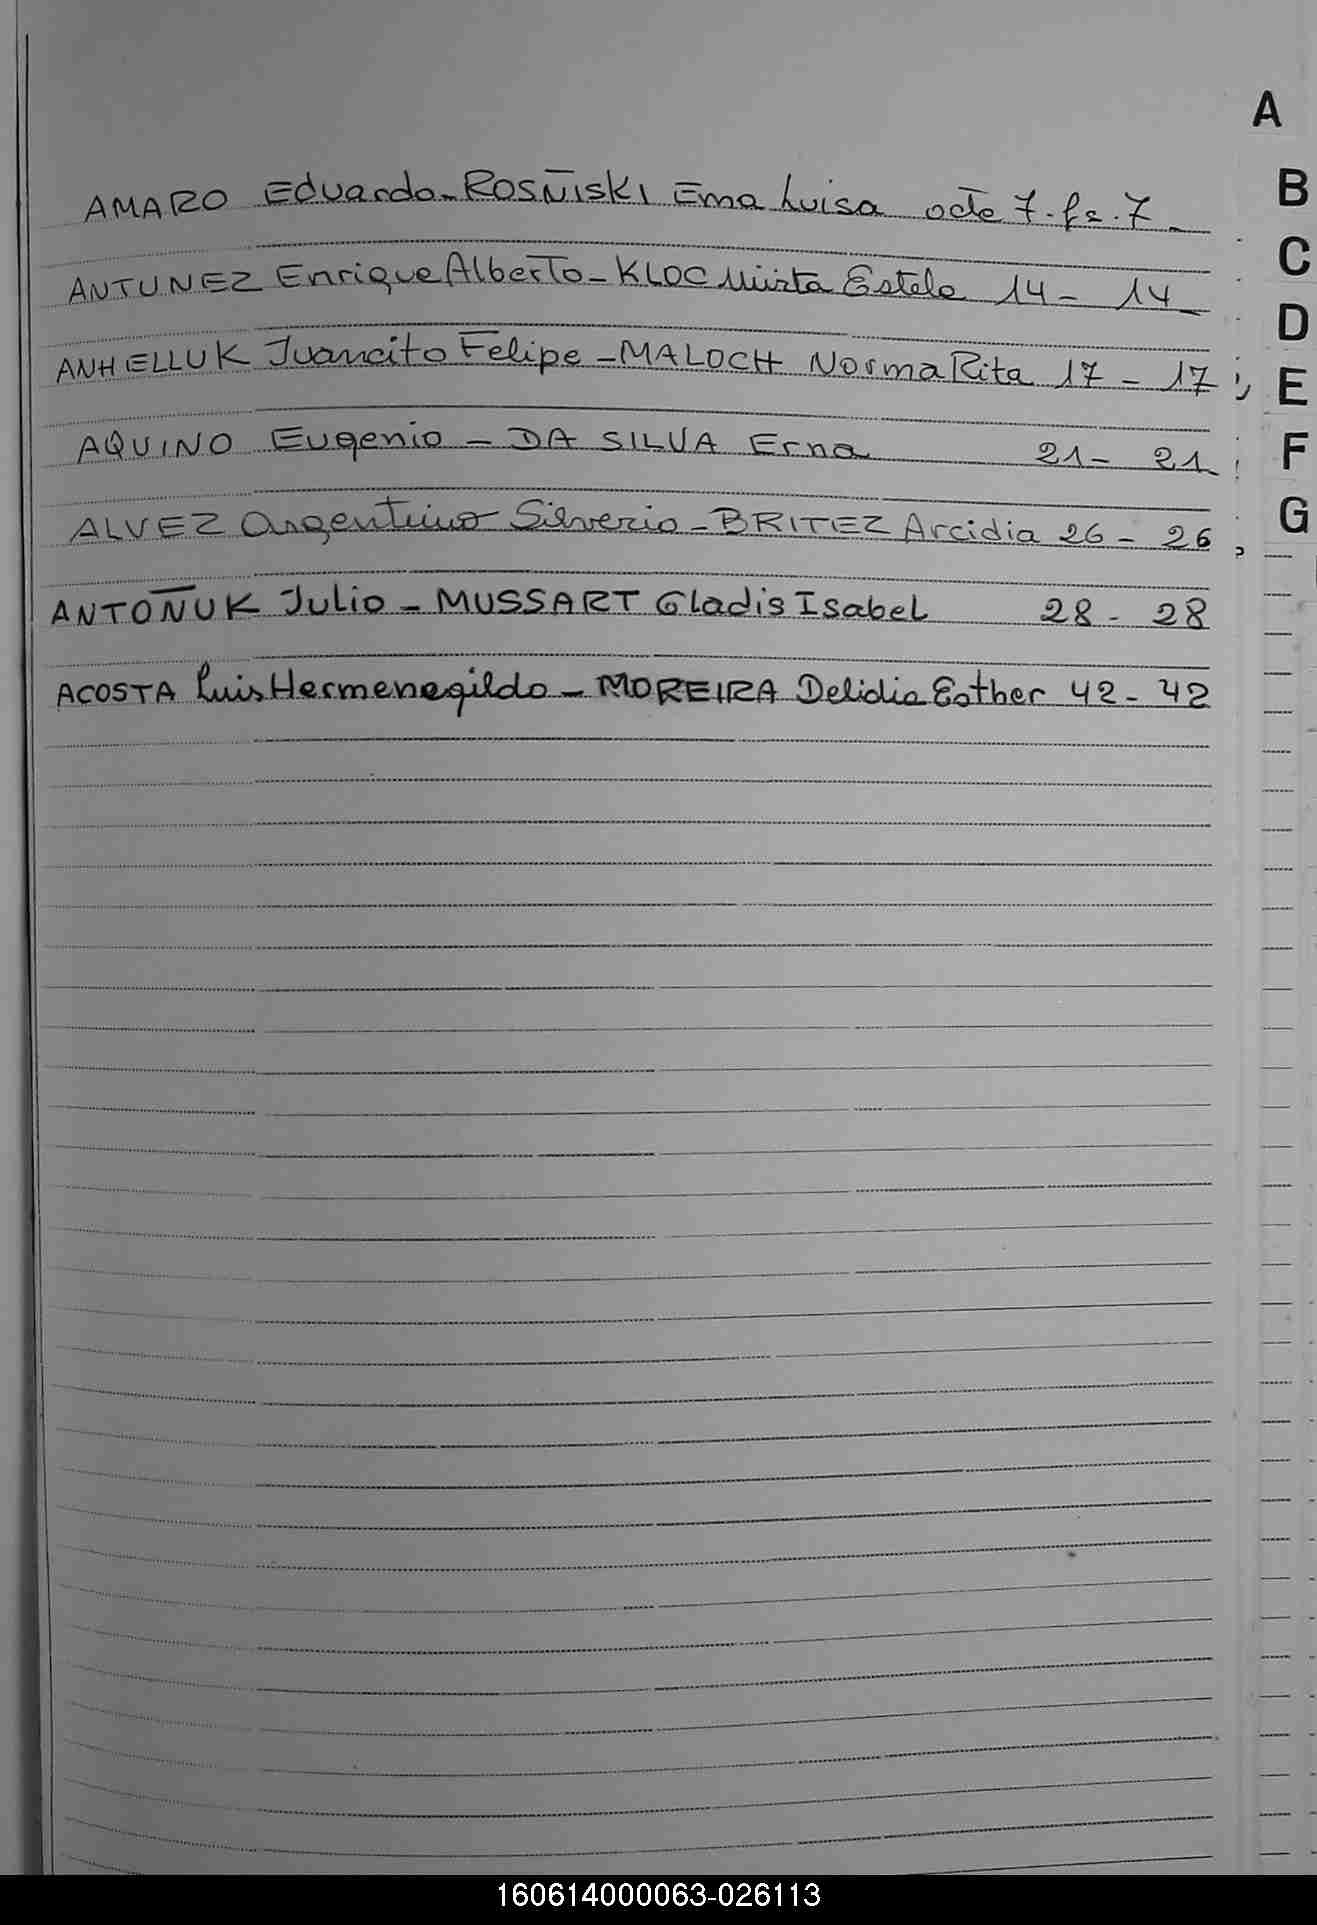 A
AMARO Eduardo - ROSÑISKI Ema Luisa acta 7. fs. 7
B
C
ANTUNEZ Enrique Alberto - KLOC Mirta Estela 14 - 14
D
ANHELLUK Juancito Felipe - MALOCH Norma Rita 17 - 17
E
AQUINO Eugenio - DA SILVA Erna 21 - 21
F
ALVEZ Argentino Silverio - BRITEZ Arcidia 26 - 26
G
ANTOÑUK Julio - MUSSART Gladis Isabel 28 - 28
ACOSTA Luis Hermenegildo - MOREIRA Delidia Esther 42 - 42
160614000063-026113